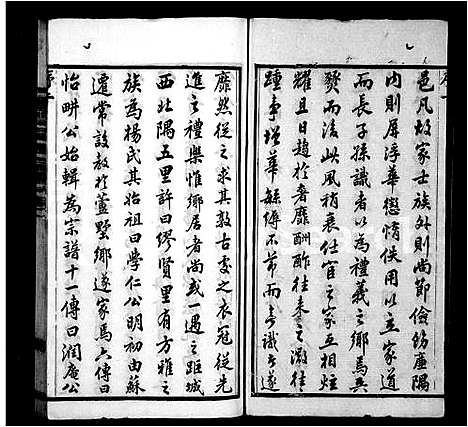 邑凡故家士族外則尚節儉飭廉隅
內則屏浮華懲惰佚用以立家道
而長子孫識者以為禮義之鄉焉兵
燹而後此風稍衰仕宦之家互相炫
耀且日趨於奢靡酬酢往來之微往
踵事增華繁縟不節而無識者遂
靡然從之求其敦古處之衣冠從先
進之禮樂惟鄉居者尚或一遇之距城
西北隅五里許曰繆賢里有方雅之
族為楊氏其始祖曰學仁公明初由蘇
遷常設教於萱墅鄉遂家焉六傳曰
怡畊公始輯為宗譜十一傳曰潤庵公